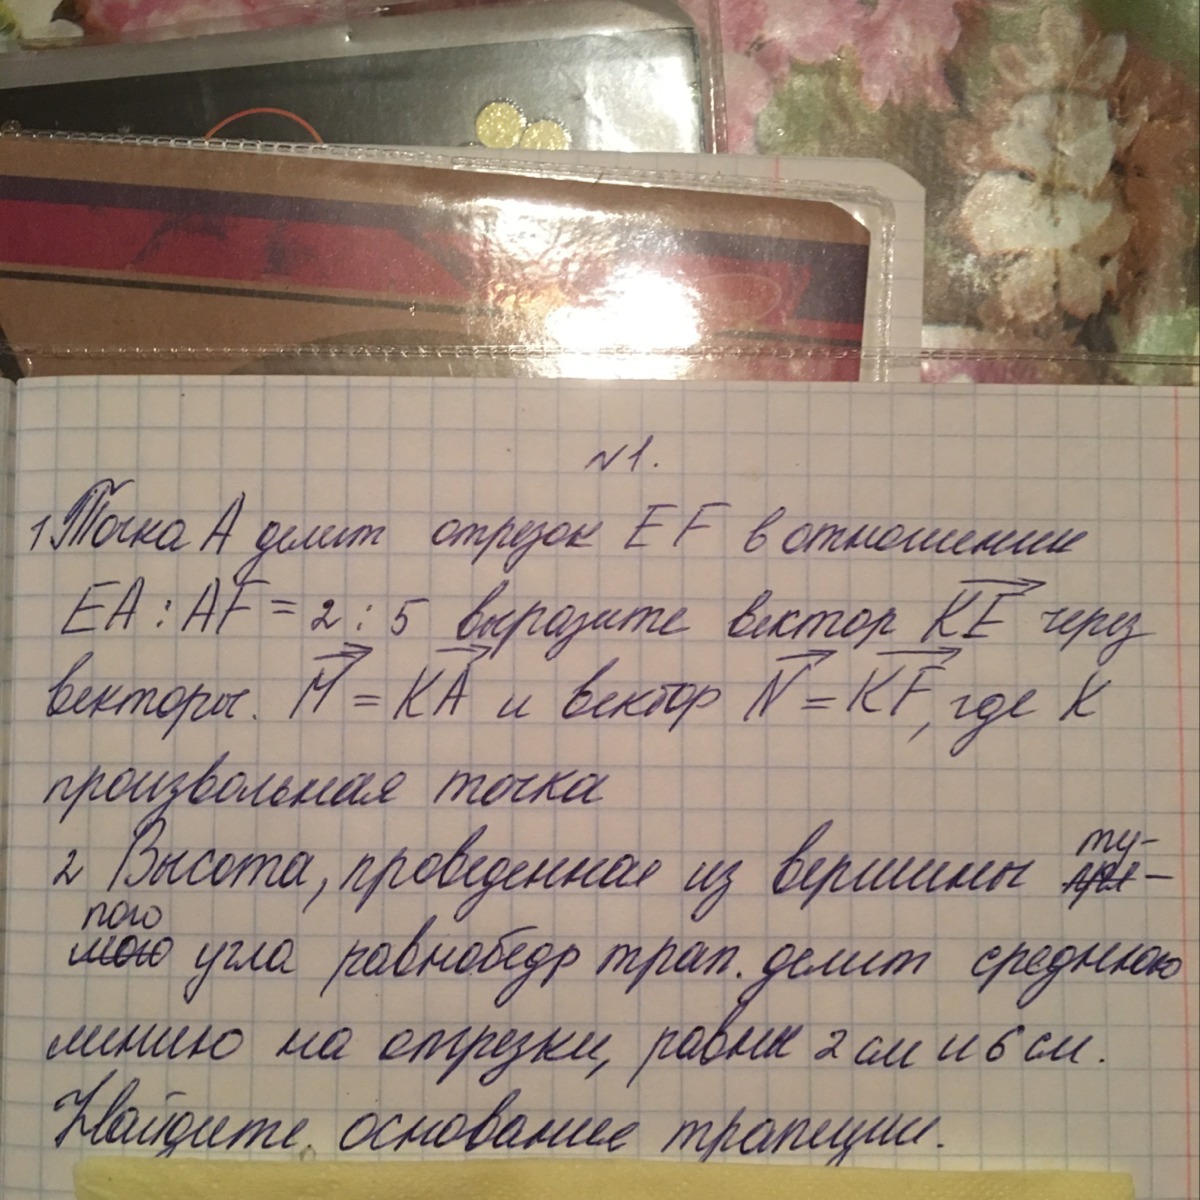 №1.
1 Точка А делит отрезок EF в отношении
EA : AF = 2 : 5 выразите вектор KE через
векторы. M = KA и вектор N = KF, где K
произвольная точка
2 Высота, проведенная из вершины ту-
пого угла равнобедр трап. делит среднюю
линию на отрезки, равны 2 см и 6 см.
Найдите основание трапеции.